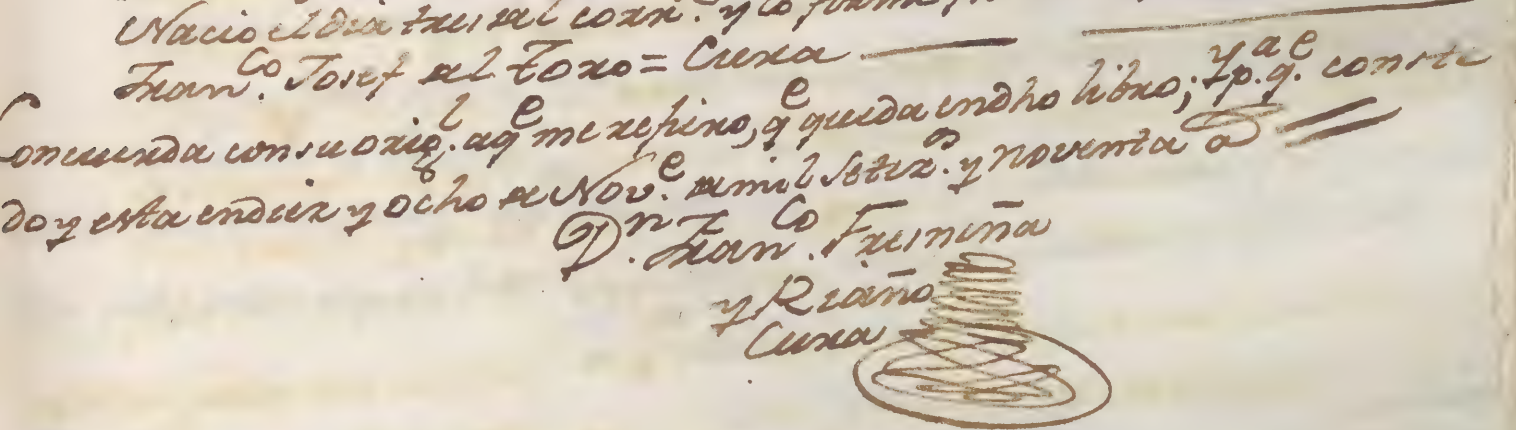 Nacio el dia tres del corr.te y lo firmé
Fran.co Josef del Toro = Cura
Concuerda con su orig.l aq.e me refiero, q.e queda en dho libro; y p.a q.e conste
doy esta en diez y ocho de Nov.e de mil setez.os y noventa a
D.n Fran.co Fresneña
y Riaño
Cura